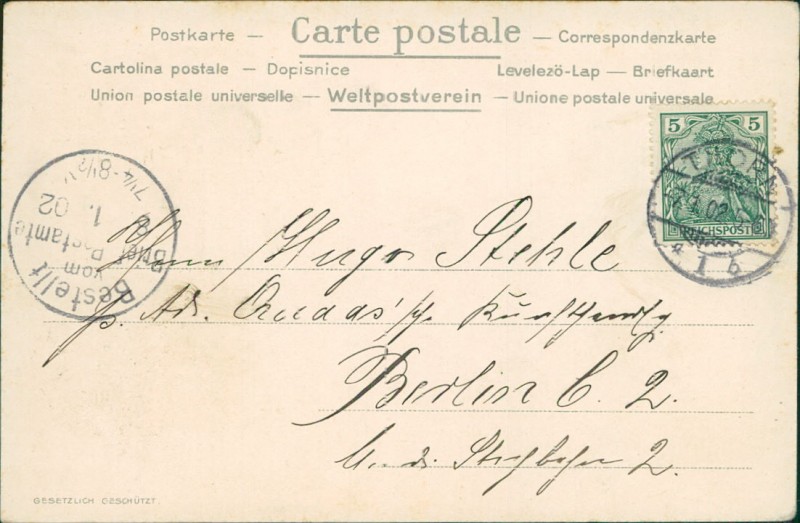 Postkarte — Carte postale — Correspondenzkarte
Cartolina postale — Dopisnice Levelezö-Lap — Briefkaart
Union postale universelle — Weltpostverein — Unione postale universale
5 5
REICHSPOST
THORN
02
* 1 b
Bestellt
vom
Postamte
1. 02
7¼-8½V
Herrn Hugo Stehle
p. Adr.
Berlin C. 2.
An d. Stechbahn 2.
GESETZLICH GESCHÜTZT.